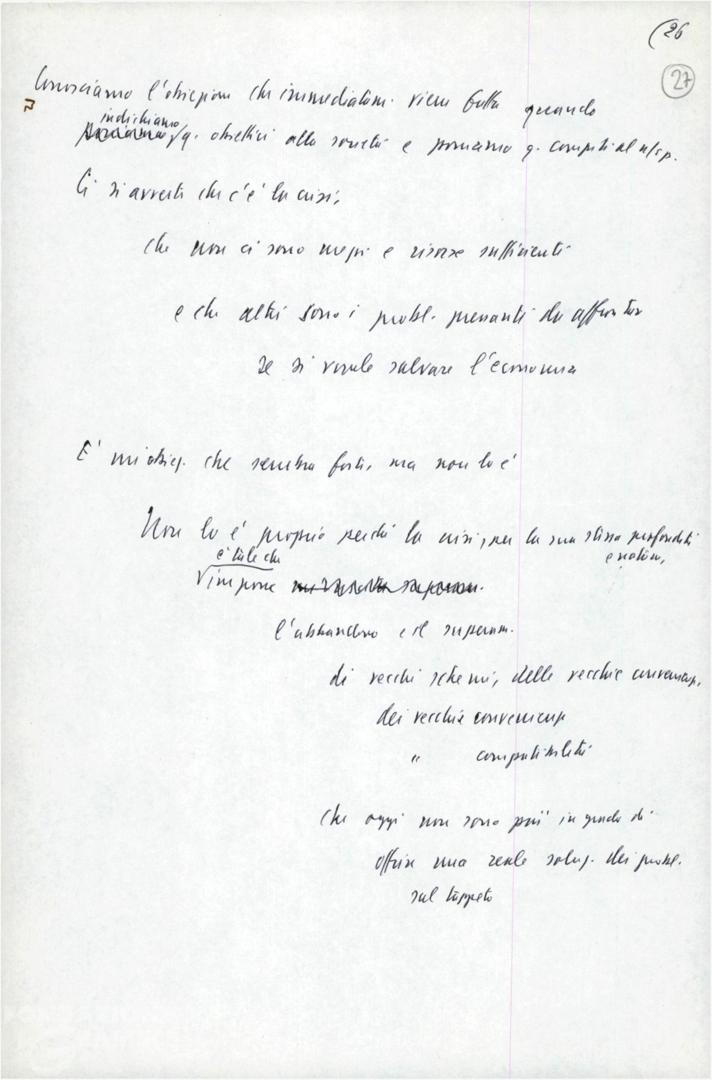 (26
27
Conosciamo l'obiezione che immediatam. viene fatta quando
indichiamo
q. obiettivi alla società e poniamo q. compiti al n/s p.
Ci si avverte che c'è la crisi,
che non ci sono mezzi e risorse sufficienti
e che altri sono i probl. pressanti da affrontare
se si vuole salvare l'economia
E' un'obiez. che sembra forte, ma non lo è
Non lo è proprio perché la crisi, per la sua stessa profondità
e natura,
è tale che
V impone
l'abbandono e il superam.
di vecchi schemi, delle vecchie convenienze,
dei vecchie convenienze
" compatibilità
che oggi non sono più in grado di
offrire una reale soluz. dei probl.
sul tappeto